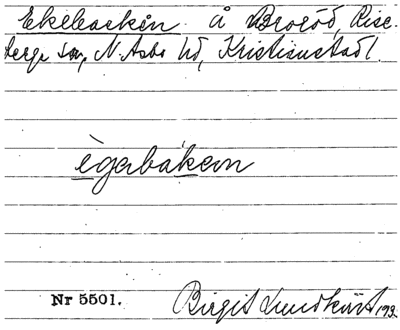 Ekebacken å Broröd, Rise-
berga sn, N. Åsbo hd, Kristianstad l.
ègabakan
Nr 5501. Birgit Lundkvist 193